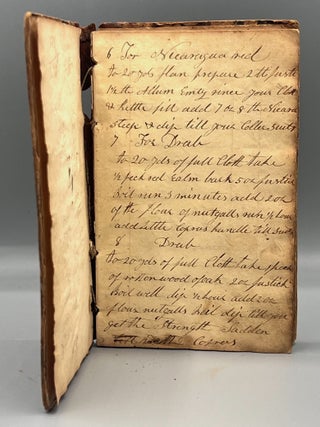 6 For Nicaragua red
to 20 yds flan prepare 2 ℔ fustic
℔ Allum Emty rince your Cloth
& kettle fill add 7 oz 8 ℔ Nicara
Steep & dip till your Coller suits
7 For Drab
to 20 yds of full Cloth take
½ peck red Ealm bark 5 oz fustic
boil run 3 minutes add 2 oz
of the flour of nutgalls run ½ hour
add little Coprus handle till suits
8 Drab
to 20 yds of full Cloth take
of rotten wood of oak 2 oz fustick
boil well dip ½ hour add 2 oz
flour nutgalls boil dip till you
get the Strength Sadden
Coprus